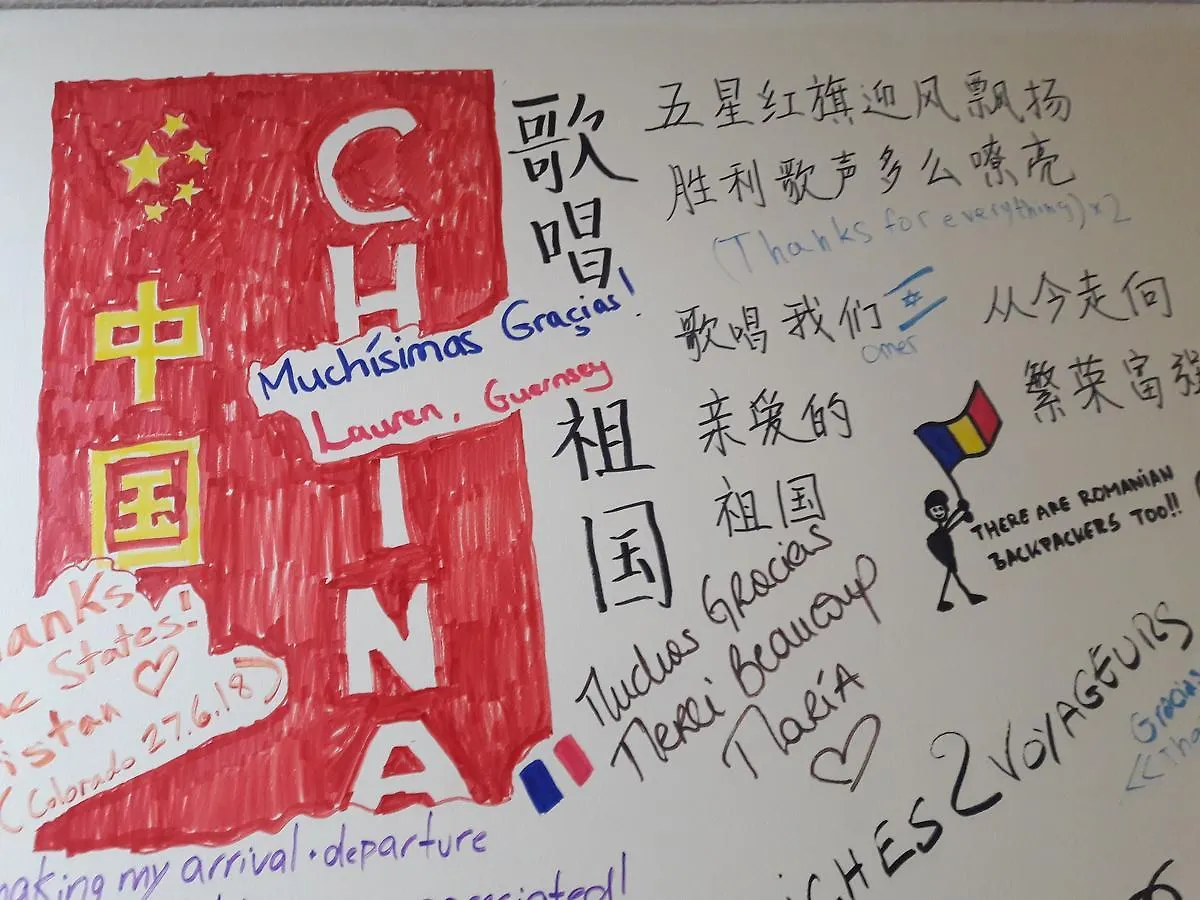 中国
CHINA
歌唱祖国
五星红旗迎风飘扬
胜利歌声多么嘹亮
(Thanks for everything) x2
歌唱我们
Omer
从今走向
亲爱的
繁荣富强
祖国
Muchísimas Graçias!
Lauren, Guernsey
THERE ARE ROMANIAN
BACKPACKERS TOO!!
Muchas Gracias
Merci Beaucoup
MARÍA
States!
(Colorado 27.6.18)
2 VOYAGEURS
Gracias
my arrival · departure